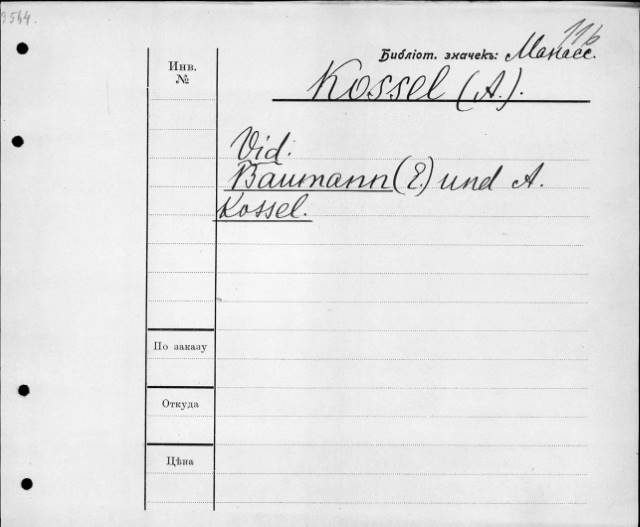 9564.
116
Библіот. значекъ: Манасе.
Инв.
№
Kossel (A.).
Vid.
Baumann (E.) und A.
Kossel.
По заказу
Откуда
Цѣна